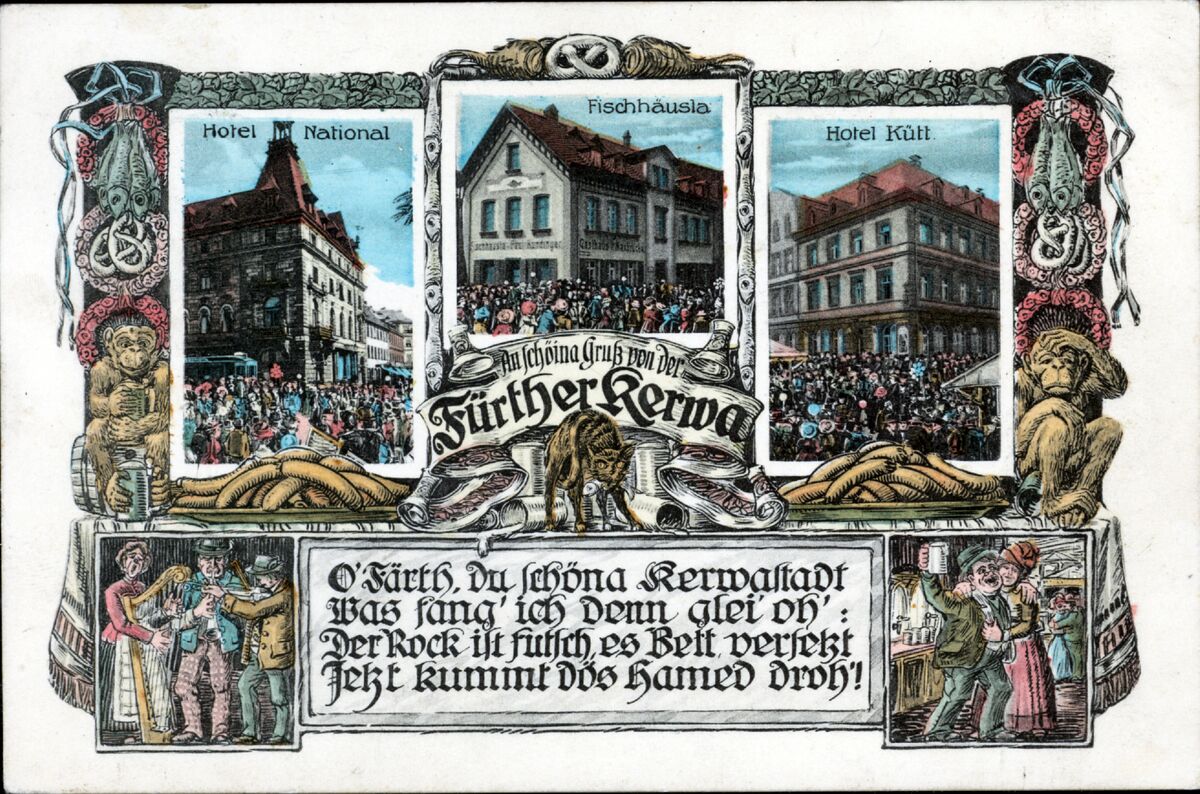 Hotel National
Fischhäusla
Hotel Kütt.
Gasthaus
An schöina Gruß von der
Fürther Kerwa
O' Färth, Du schöna Kerwastadt
Was fang' ich denn glei' oh' :
Der Rock ist futsch, es Bett versetzt
Jetzt kummt dös Hamed droh'!